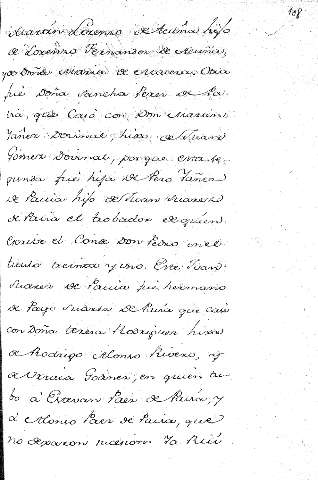 108
Martin Lorenzo de Acuña hijo
de Lorenzo Fernandez de Acuña,
y de Doña Maria de
fué Doña Sancha Perez de Pa-
via, que Casó con Don Martin
Yañez hixo de Juan
Gomez porque esta se-
gunda fué hija de Pero Yañez
de Pavia hijo de Juan Suarez
de Pavia el trobador de quien
Escrive el Conde Don Pedro in el
titulo treinta y uno. Este Juan
Suarez de Pavia fué hermano
de Payo Suarez de Pavia que casó
con Doña teresa Rodriguez hixa
de Rodrigo Alonso Rivero, y
de Urraca en quien tu-
bo á Estevan Paez de Pavia, y
á Alonso Paez de Pavia, que
no dexaron